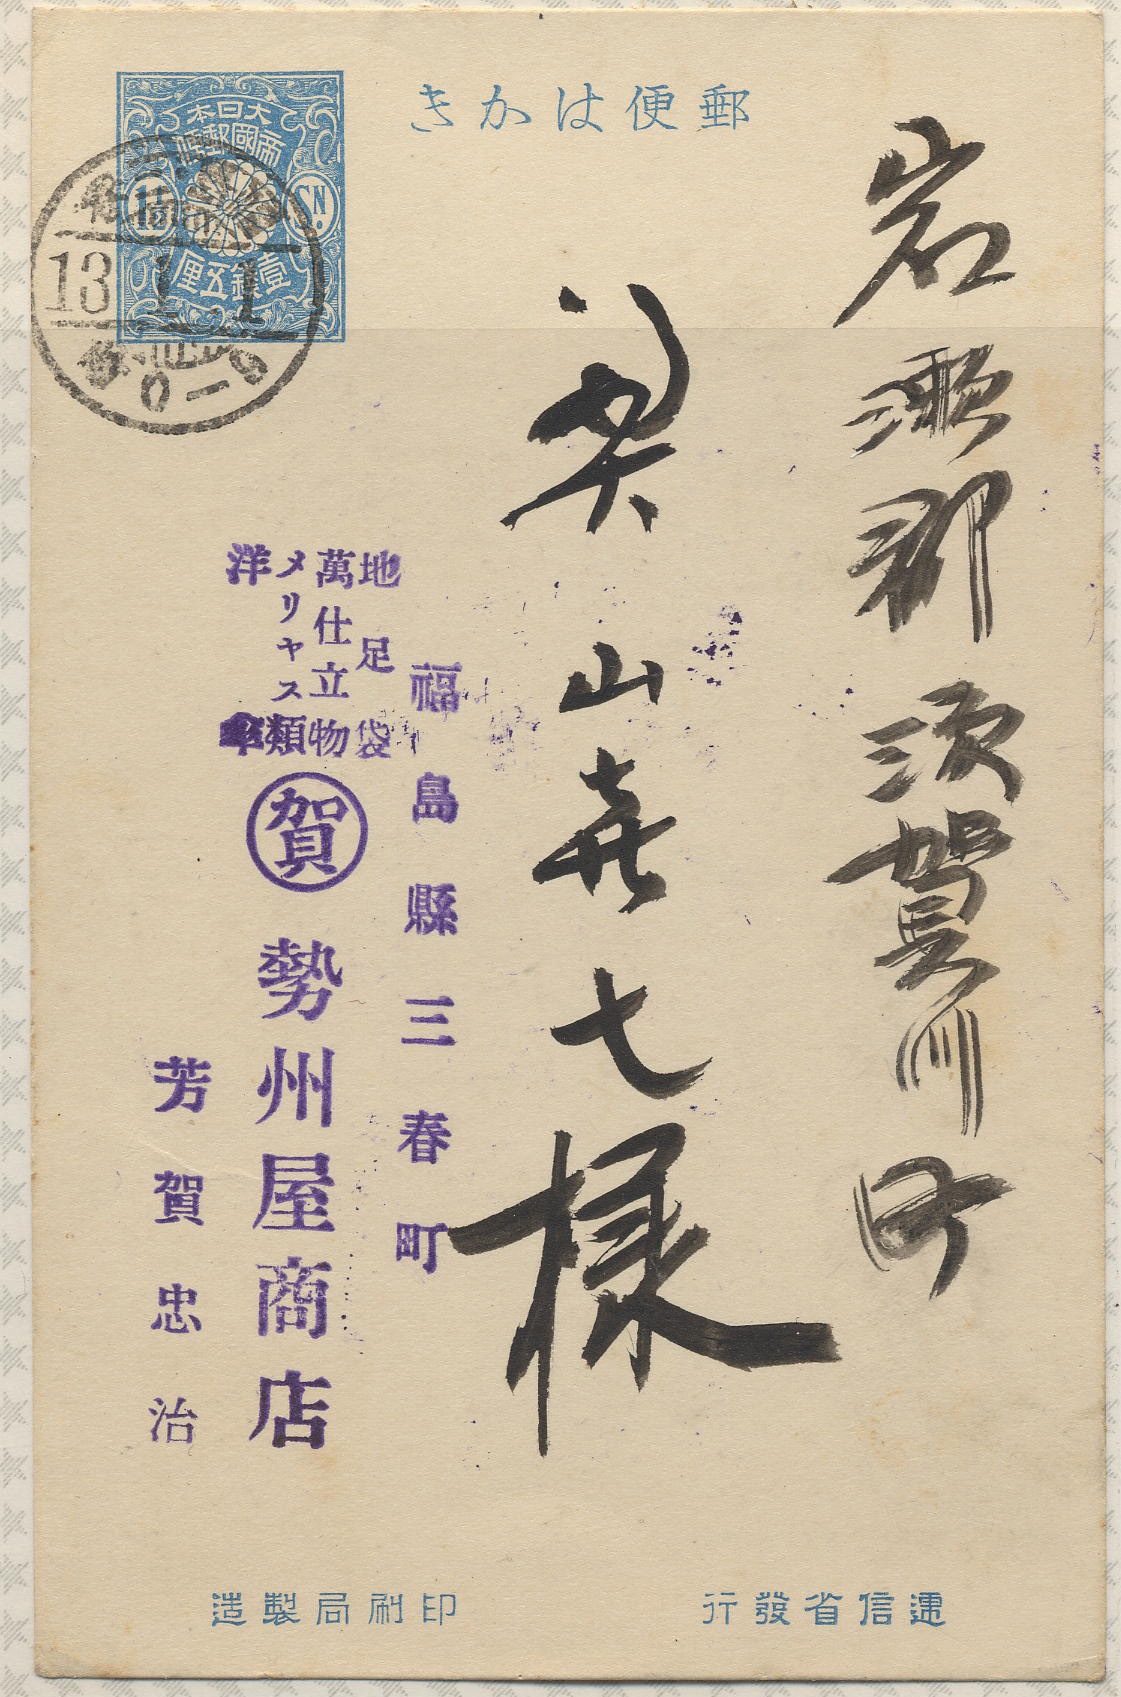 郵便はかき
大日本
帝國郵便
1½
SN.
壹錢五厘
13 1 1
0-9
岩瀬郡須賀川町
梁山喜七様
福島縣三春町
地足袋
萬仕立物
メリヤス類
洋傘
賀
勢州屋商店
芳賀忠治
遞信省發行
印刷局製造